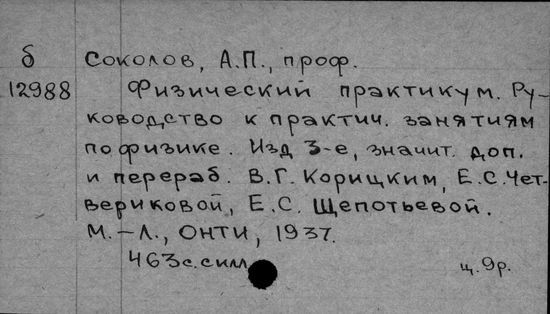 б Соколов, А.П., проф.
12988 Физический практикум. Ру-
ководство к практич. занятиям
по физике. Изд 3-е, значит. доп.
и перераб. В.Г. Корицким, Е.С.Чет-
вериковой, Е.С. Щепотьевой.
М.-Л., ОНТИ, 1937.
463с.силл
ц. 9р.